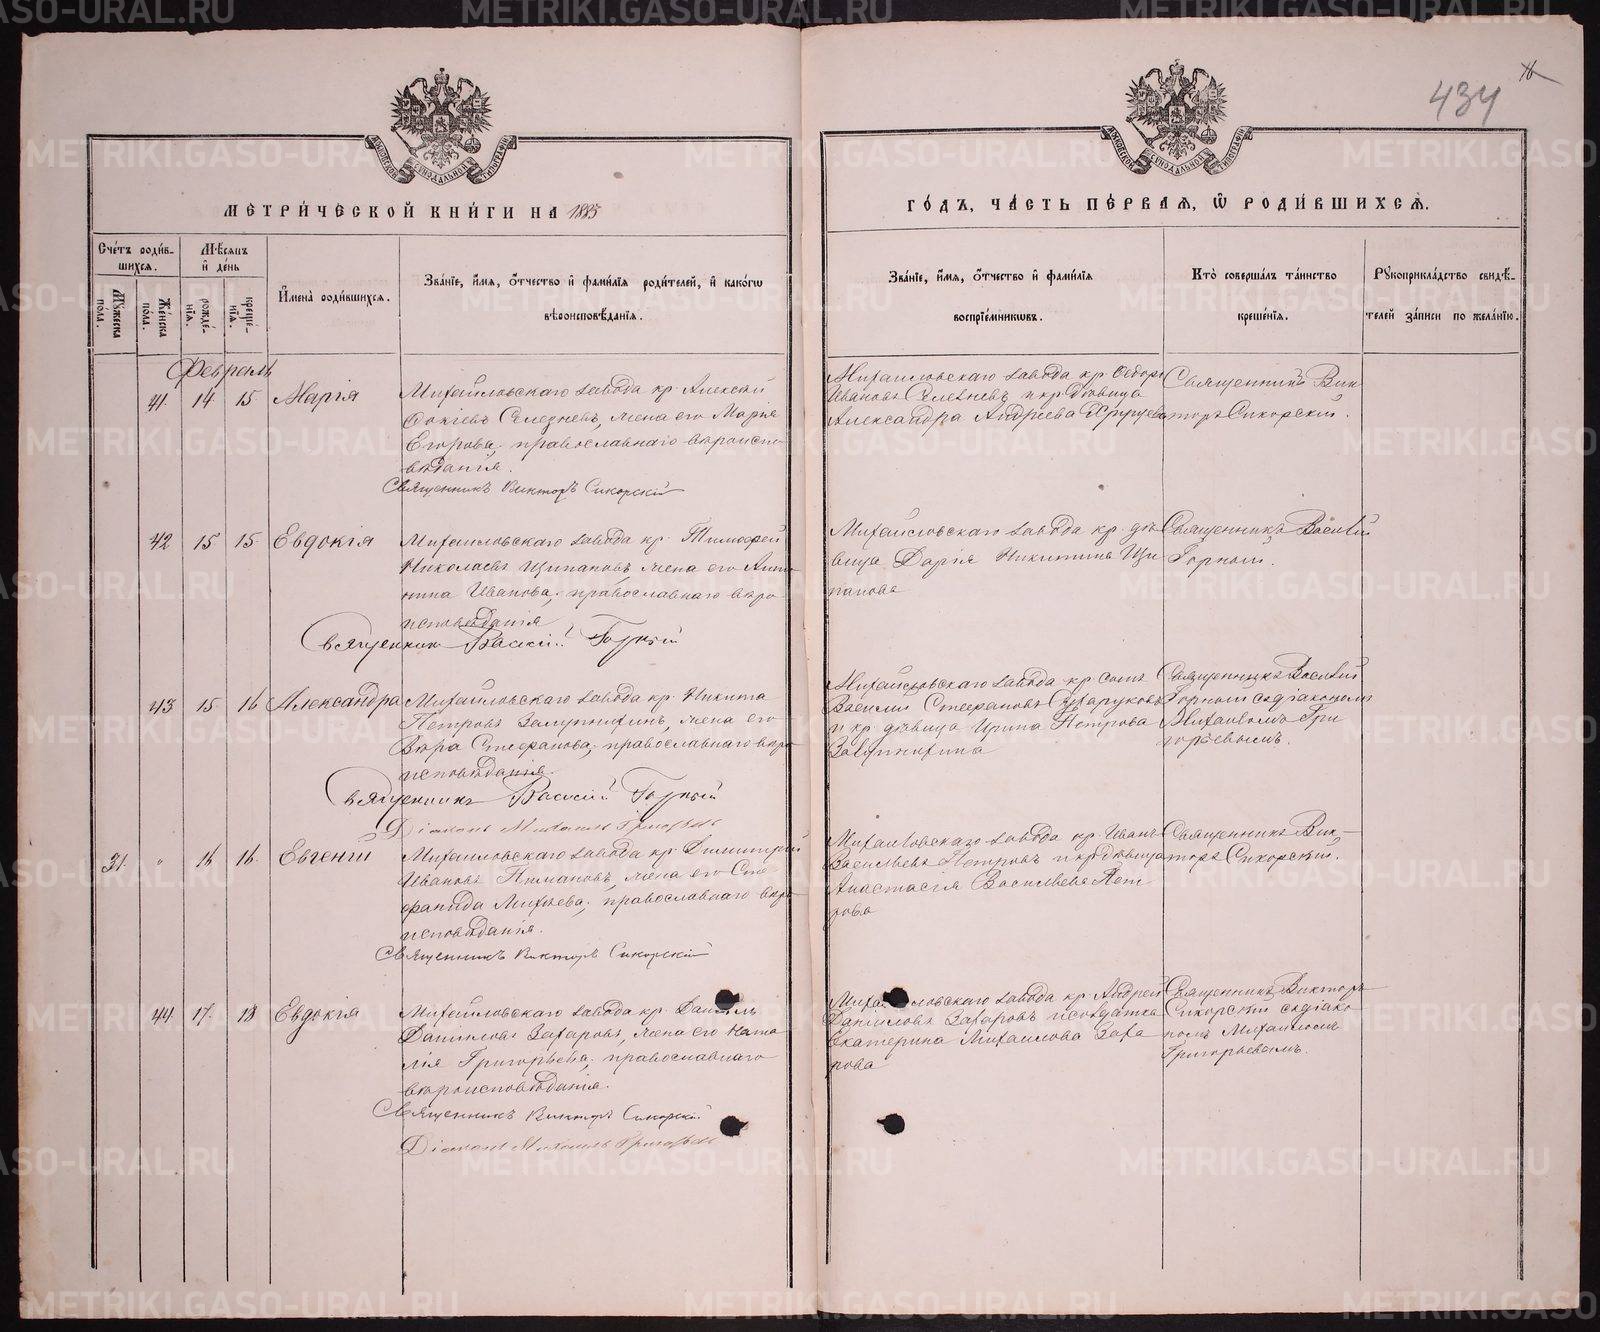 434
МЕТРИЧЕСКОЙ КНИГИ НА 1885
ГОДЪ, ЧАСТЬ ПЕРВАЯ, Ѡ РОДИВШИХСЯ.
Счетъ родив-
шихся.
Мѣсяцъ
и день
Мужеска
пола.
Женска
пола.
рожде-
нія.
креще-
нія.
Имена родившихся.
Званіе, имя, отчество и фамилія родителей, и какого
вѣроисповѣданія.
Званіе, имя, отчество и фамилія
воспріемниковъ.
Кто совершалъ таинство
крещенія.
Рукоприкладство свидѣ-
телей записи по желанію.
Февраль
41. 14 15 Марія
Михайловскаго завода кр. Алексѣй
Фокіевъ Селезневъ, жена его Марія
Егорова; православнаго вѣроиспо-
вѣданія.
Священникъ Викторъ Сикорскій
Михайловскаго завода кр. Ѳедоръ
Ивановъ Селезневъ и кр. дѣвица
Александра Андреева
Священникъ Вик
торъ Сикорскій.
42 15 15 Евдокія
Михайловскаго завода кр. Тимофей
Николаевъ Щипановъ, жена его Анто
нина Иванова; православнаго вѣро
исповѣданія
Священник Василій Горный
Михайловскаго завода кр. дѣ
вица Дарія Никитина Щи
панова
Священникъ Василій
Горный.
43 15 16 Александра
Михайловскаго завода кр. Никита
Петровъ жена его
Вѣра Стефанова; православнаго вѣро
исповѣданія.
Священникъ Василій Горный
Діаконъ Михаилъ Григорьевъ
Михайловскаго завода кр. сынъ
Василій Стефановъ
и кр. дѣвица Ирина Петрова
Священникъ Василій
Горный съ діакономъ
Михаиломъ Гри
горьевымъ.
31. " 16 16. Евгеній
Михайловскаго завода кр. Димитрій
Ивановъ жена его Сте
фанида Михѣева; православнаго вѣро
исповѣданія.
Священникъ Викторъ Сикорскій
Михайловскаго завода кр. Иванъ
Васильевъ Петровъ и кр. дѣвица
Анастасія Васильева Пет
рова
Священникъ Вик-
торъ Сикорскій.
44 17. 18 Евдокія
Михайловскаго завода кр. Даніилъ
Даниловъ Захаровъ, жена его Ната
лія Григорьева; православнаго
вѣроисповѣданія.
Священникъ Викторъ Сикорскій
Діаконъ Михаилъ Григорьевъ
Михайловскаго завода кр. Андрей
Даниловъ Захаровъ и солдатка
Екатерина Михаилова Заха
рова
Священникъ Викторъ
Сикорскій съ діако
номъ Михаиломъ
Григорьевымъ.
METRIKI.GASO-URAL.RU